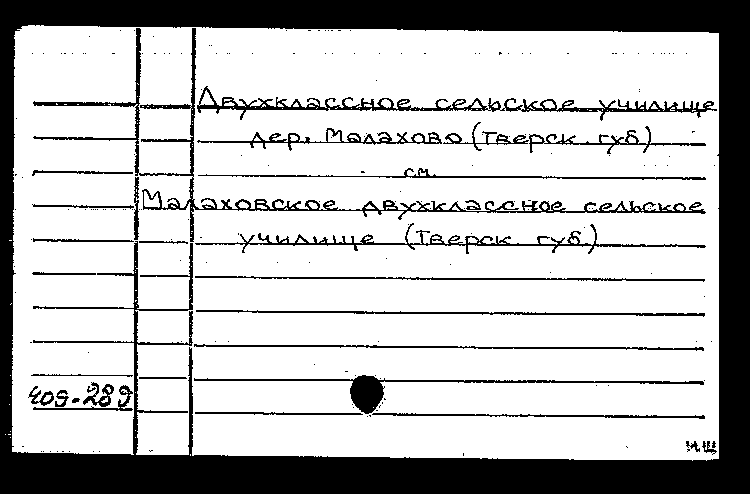 Двухклассное сельское училище
дер. Малахово (Тверск. губ)
см.
Малаховское двухклассное сельское
училище (Тверск. губ.)
409-289
И.Щ